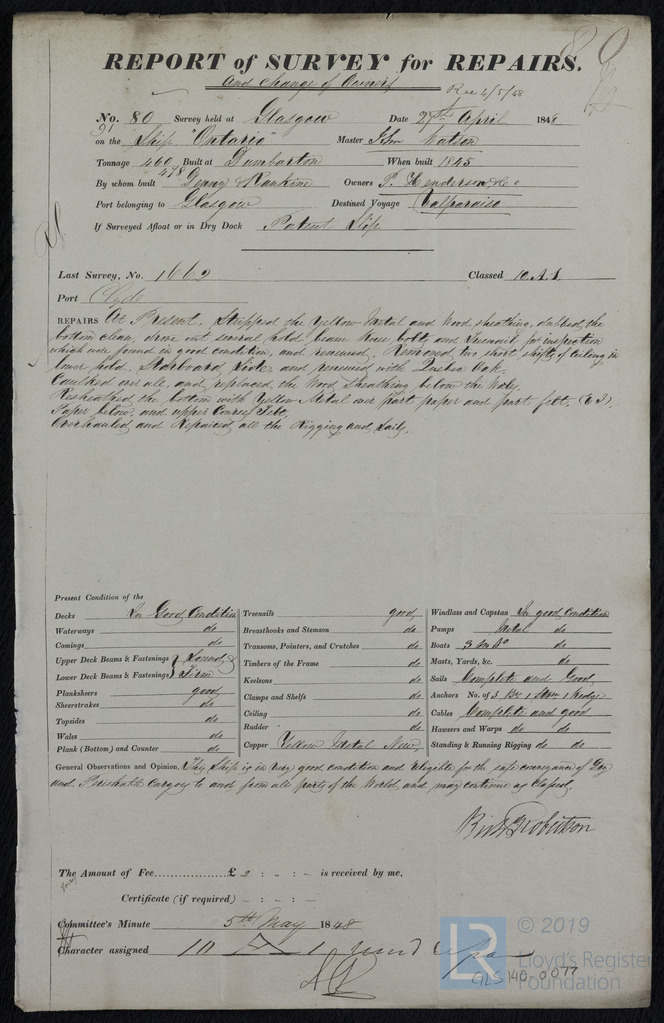 REPORT of SURVEY for REPAIRS.
and change of Owners
Rec 4/5/48
No. 80 Survey held at Glasgow Date 27th April 184
on the Ship "Ontario" Master John Watson
Tonnage 460 Built at Dumbarton When built 1845
478
By whom built Denny & Rankine Owners P. Henderson & Co
Port belonging to Glasgow Destined Voyage Valparaiso
If Surveyed Afloat or in Dry Dock Patent Slip
Last Survey, No. 1662 Classed 10 A.1.
Port Clyde
REPAIRS At Present. Stripped the Yellow Metal and Wood sheathing, dubbed the
bottom clean, drove out several hold beam knee bolts and Treenails for inspection
which were found in good condition, and renewed. Removed two short shifts of Ceiling in
lower hold, Starboard Side and renewed with Quebec Oak.
Caulked over all, and replaced the Wood Sheathing below the Wales.
Resheathed the bottom with Yellow Metal over part paper and part felt,
Paper below, and upper Courses Felt.
Overhauled and Repaired all the Rigging and Sails.
Present Condition of the
Decks In Good Condition
Waterways do
Comings do
Upper Deck Beams & Fastenings } Sound &
Lower Deck Beams & Fastenings } Firm
Planksheers good
Sheerstrakes do
Topsides do
Wales do
Plank (Bottom) and Counter do
Treenails good
Breasthooks and Stemson do
Transoms, Pointers, and Crutches do
Timbers of the Frame do
Keelsons do
Clamps and Shelfs do
Ceiling do
Rudder do
Copper Yellow Metal New
Windlass and Capstan In good Condition
Pumps Metal do
Boats 3 in No
Masts, Yards, &c. do do
Sails Complete and Good
Anchors No. of 3 Br 1 Strm 1 Kedge
Cables Complete and good
Hawsers and Warps do do
Standing & Running Rigging do do
General Observations and Opinion. This Ship is in very good condition and Eligible for the safe conveyance of Dry
and Perishable Cargoes to and from all parts of the World, and may continue as Classed.
Robertson
The Amount of Fee £ 2 : - : - is received by me.
Certificate (if required) - : - : -
Committee's Minute 5th May 1848
Character assigned 10 A 1
© 2019
LR
Lloyd's Register
Foundation
GLS 140-0077